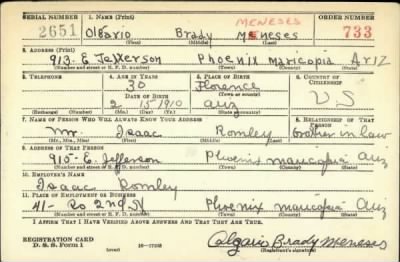 SERIAL NUMBER 1. NAME (Print) ORDER NUMBER
MENESES
2651 Olgario Brady Meneses 733
(First) (Middle) (Last)
2. ADDRESS (Print)
913-E Jefferson Phoenix maricopia Ariz
(Number and street or R. F. D. number) (Town) (County) (State)
3. TELEPHONE 4. AGE IN YEARS 5. PLACE OF BIRTH 6. COUNTRY OF CITIZENSHIP
30 Florence
DATE OF BIRTH (Town or county)
2 15 1910 ariz U S
(Exchange) (Number) (Mo.) (Day) (Yr.) (State or country)
7. NAME OF PERSON WHO WILL ALWAYS KNOW YOUR ADDRESS 8. RELATIONSHIP OF THAT PERSON
Mr. Isaac Romley brother in law
(Mr., Mrs., Miss) (First) (Middle) (Last)
9. ADDRESS OF THAT PERSON
910-E. Jefferson Phoenix maricopa Ariz
(Number and street or R. F. D. number) (Town) (County) (State)
10. EMPLOYER'S NAME
Isaac Romley
11. PLACE OF EMPLOYMENT OR BUSINESS
41- So 2nd St Phoenix maricopa Ariz
(Number and street or R. F. D. number) (Town) (County) (State)
I AFFIRM THAT I HAVE VERIFIED ABOVE ANSWERS AND THAT THEY ARE TRUE.
REGISTRATION CARD
D. S. S. FORM 1 (over) Olgario Brady Meneses
(Registrant's signature)